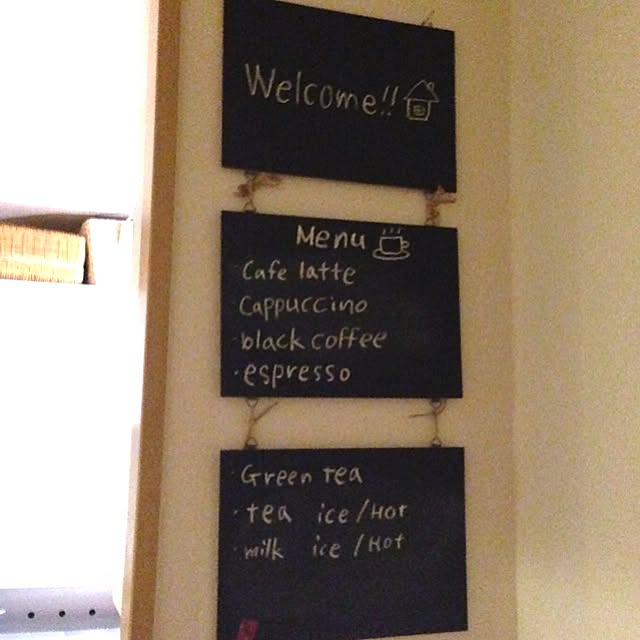 Welcome!!
Menu
Cafe latte
Cappuccino
·black coffee
·espresso
·Green Tea
·tea ice/Hot
·milk ice/Hot